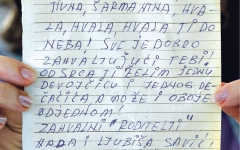 TIVNA, ŠARMANTNA, HVA-
LA, HVALA, HVALA TI DO
NEBA! SVE JE DOBRO
ZAHVALJUJUĆI TEBI!
OD SRCA TI ŽELIM JEDNU
DEVOJČICU I JEDNOG DE-
ČAČIĆA A MOŽE I OBOJE
ODJEDNOM!
ZAHVALNI "RODITELJI"
RADA I LJUBIŠA SAVIĆ!